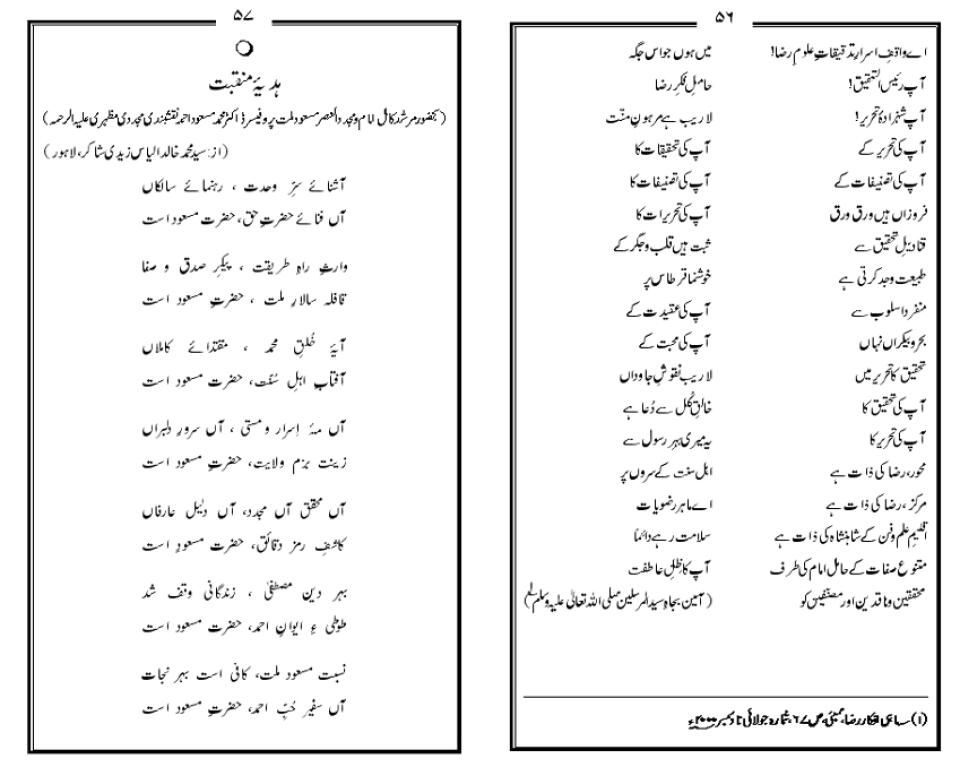 ۵۶
اے واقفِ اسرارِ تدقیقاتِ علومِ رضا!
آپ رئیس التحقیق!
آپ شہزادۂ تحریر!
آپ کی تحریر کے
آپ کی تصنیفات کے
فروزاں ہیں ورق ورق
قنادیلِ تحقیق سے
طبیعت وجد کرتی ہے
منفرد اسلوب سے
بحر و بیکراں نہاں
تحقیق کا تحریر میں
آپ کی تحقیق کا
آپ کی تحریر کا
محور، رضا کی ذات ہے
مرکز، رضا کی ذات ہے
اقلیمِ علم و فن کے شاہنشاہ کی ذات ہے
متنوع صفات کے حامل امام کی طرف
محققین و ناقدین اور مصنفین کو
میں ہوں جو اس جگہ
حاملِ فکرِ رضا
لاریب ہے مرہونِ منّت
آپ کی تحقیقات کا
آپ کی تصنیفات کا
آپ کی تحریرات کا
ثبت ہیں قلب و جگر کے
خوشنما قرطاس پر
آپ کی عقیدت کے
آپ کی محبت کے
لاریب نقوشِ جاوداں
خالقِ کُل سے دُعا ہے
یہ میری بہرِ رسول سے
اہل سنت کے سروں پر
اے ماہرِ رضویات
سلامت رہے دائمًا
آپ کا ظلِ عاطفت
(آمین بجاہِ سید المرسلین صلی اللہ تعالیٰ علیہ وسلم)
(۱) سہ ماہی افکارِ رضا، ممبئی، ص ۶۷، شمارہ جولائی تا دسمبر ۲۰۰۰ء
۵۷
ہدیۂ منقبت
(بحضور مرشدِ کامل امام و مجدد العصر مسعود ملت پروفیسر ڈاکٹر محمد مسعود احمد نقشبندی مجددی مظہری علیہ الرحمہ)
(از: سید محمد خالد الیاس زیدی شاکر، لاہور)
آشنائے سرِّ وحدت ، رہنمائے سالکاں
آں فنائے حضرتِ حق، حضرت مسعود است
وارثِ راہِ طریقت ، پیکرِ صدق و صفا
قافلہ سالارِ ملت ، حضرتِ مسعود است
آیۂ خُلقِ محمد ، مقتدائے کاملاں
آفتابِ اہلِ سُنّت، حضرتِ مسعود است
آں مۂ اِسرار و مستی ، آں سرورِ دلبراں
زینت بزم ولایت، حضرتِ مسعود است
آں محقق آں مجدد، آں دلیل عارفاں
کاشفِ رمز دقائق، حضرت مسعود است
بہر دین مصطفیٰ ، زندگانی وقف شد
طوطی ءِ ایوانِ احمد، حضرت مسعود است
نسبت مسعود ملت، کافی است بہر نجات
آں سفیر حُبِّ احمد، حضرتِ مسعود است